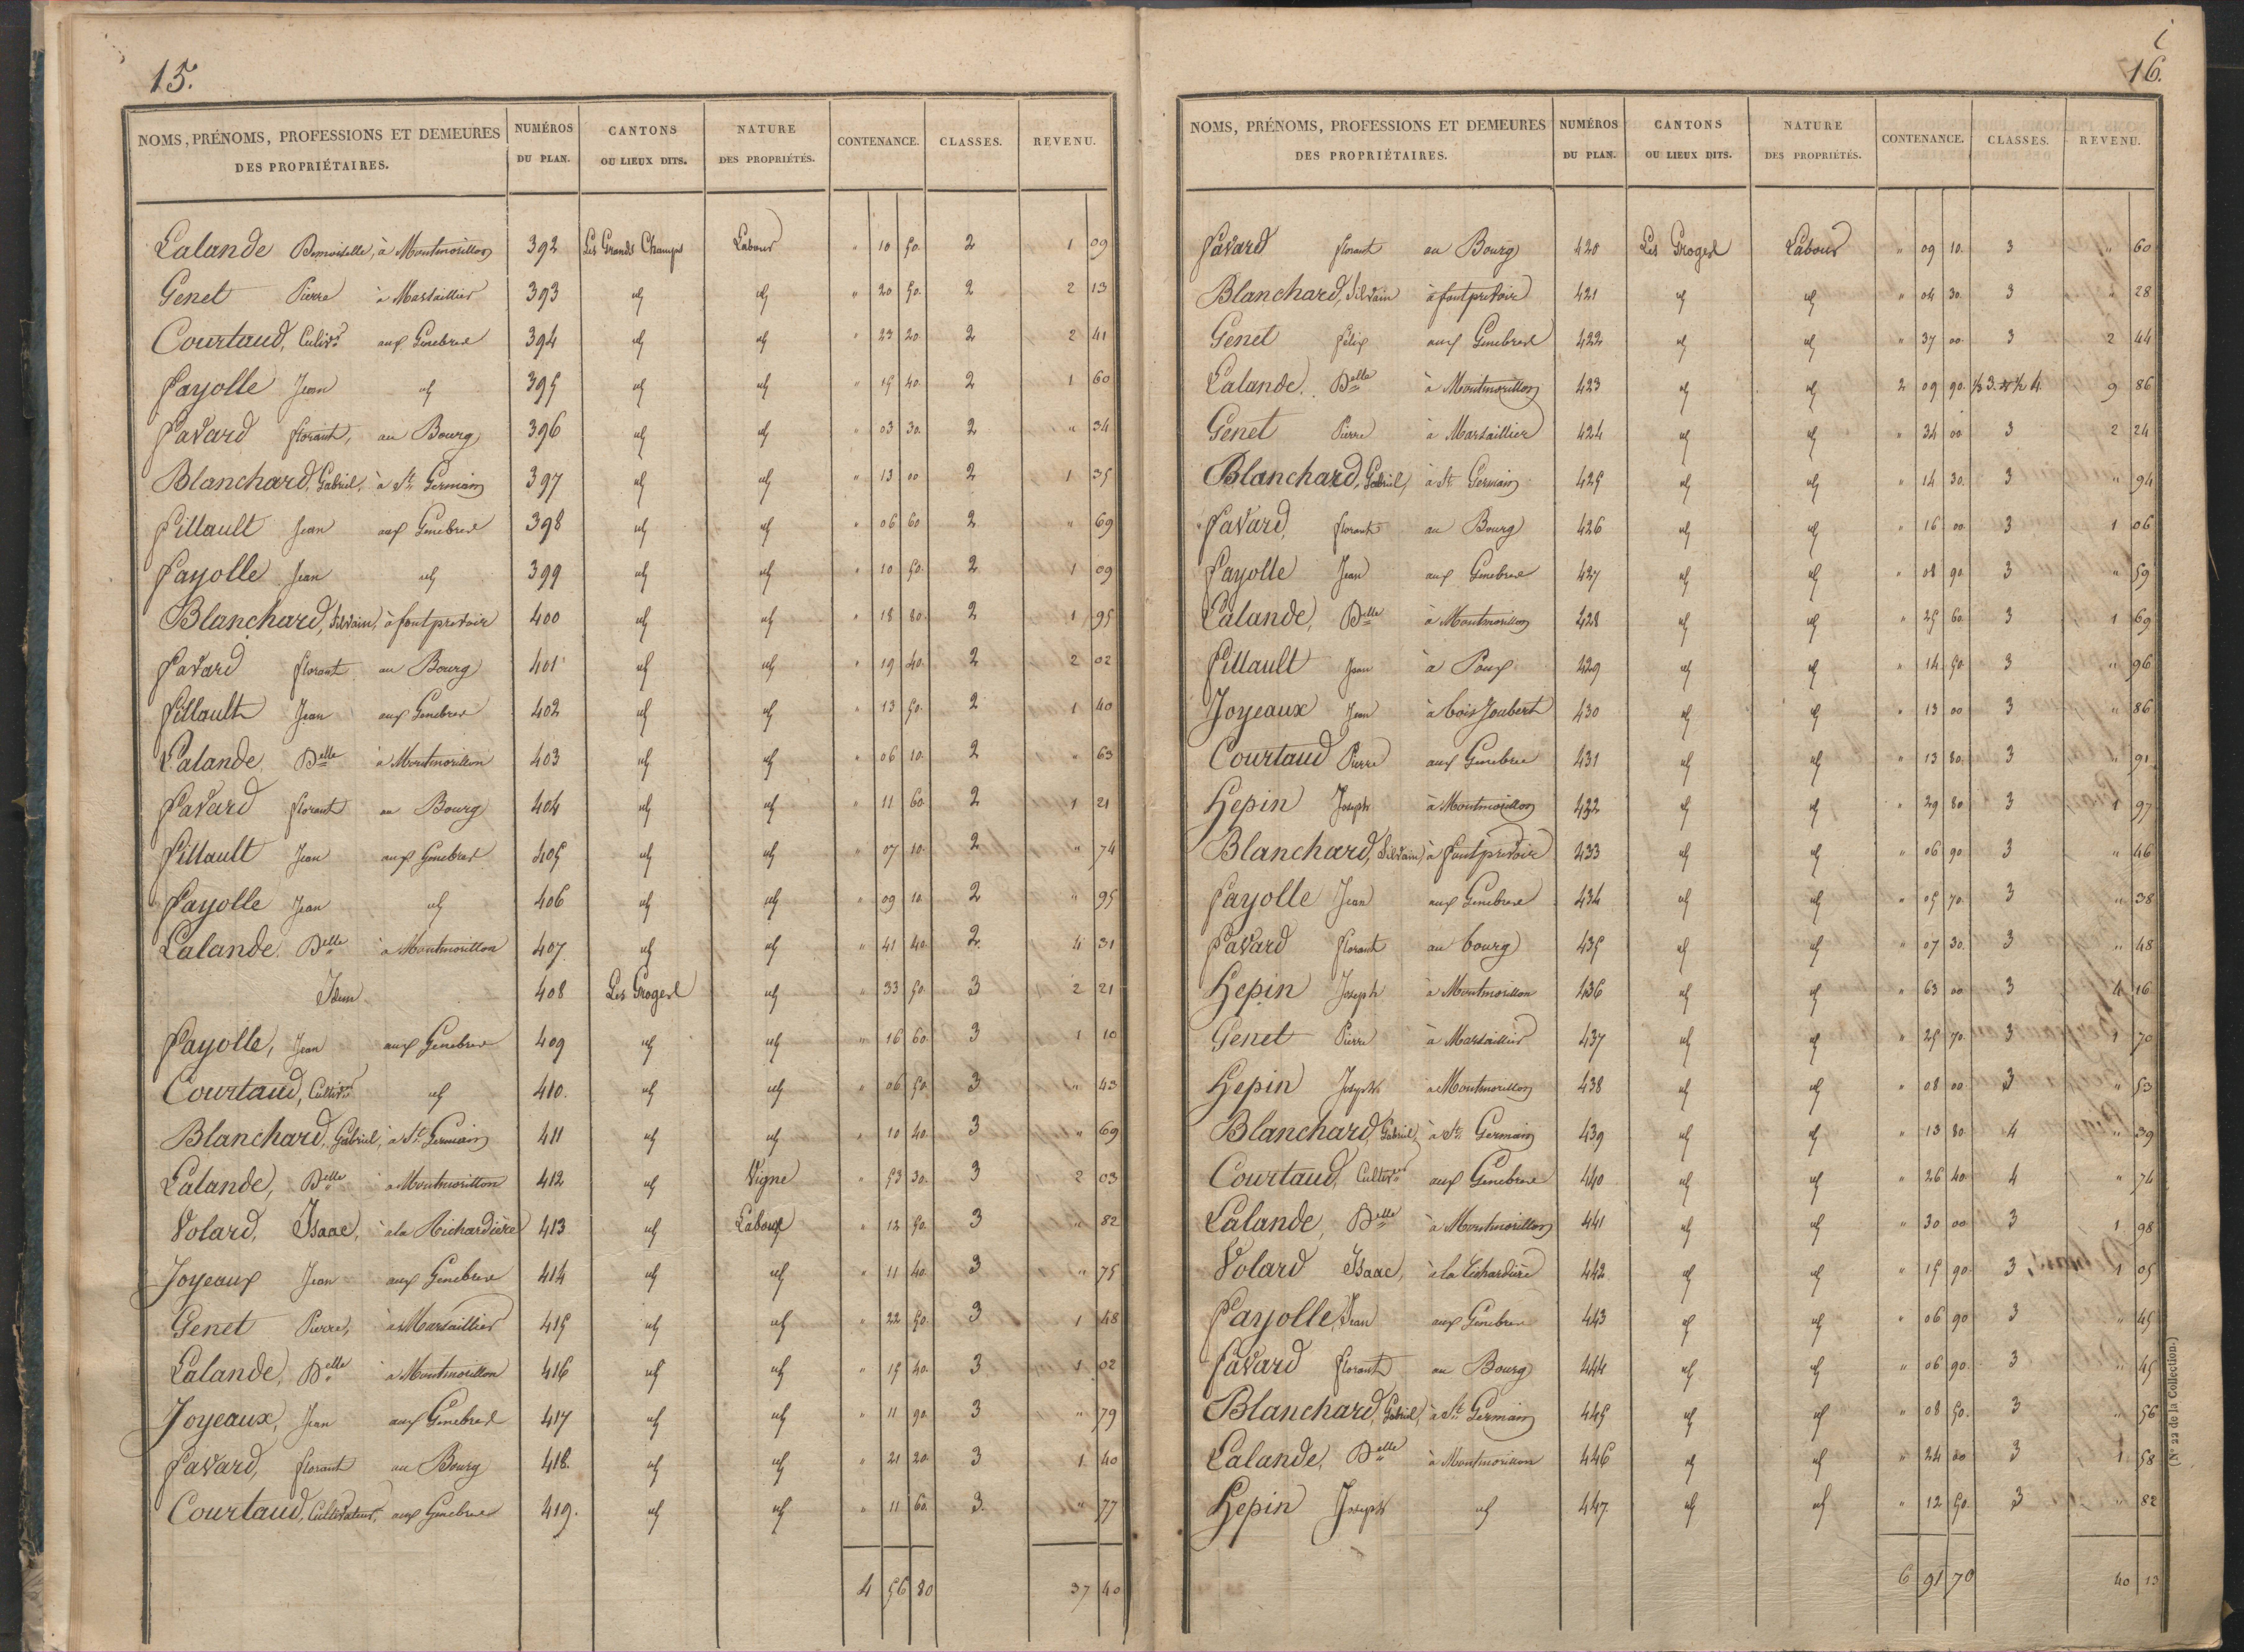 15.
NOMS, PRÉNOMS, PROFESSIONS ET DEMEURES DES PROPRIÉTAIRES. NUMÉROS DU PLAN. CANTONS OU LIEUX DITS. NATURE DES PROPRIÉTÉS. CONTENANCE. CLASSES. REVENU.
Lalande Demoiselle, à Montmorillon 392 Les Grands Champs Labour " 10 50. 2 1 09
Genet Pierre à Marsaillier 393 id id " 20 50. 2 2 13
Courtaud, Cultivr aux Genebres 394 id id " 23 20. 2 2 41
Fayolle Jean id 395 id id " 15 40. 2 1 60
Favard florant, au Bourg 396 id id " 03 30. 2 " 34
Blanchard, Gabriel, à St Germain 397 id id " 13 00 2 1 35
Pillault Jean aux Genebres 398 id id " 06 60 2 " 69
Fayolle Jean id 399 id id " 10 50. 2 1 09
Blanchard, Silvain, à fontprevoir 400 id id " 18 80. 2 1 95
Favard florant au Bourg 401 id id " 19 40. 2 2 02
Pillault Jean aux Genebres 402 id id " 13 50. 2 1 40
Lalande, Delle à Montmorillon 403 id id " 06 10. 2 " 63
Favard florant au Bourg 404 id id " 11 60. 2 1 21
Pillault Jean aux Genebres 405 id id " 07 10. 2 " 74
Fayolle Jean id 406 id id " 09 10 2 " 95
Lalande Delle à Montmorillon 407. id id " 41 40. 2. 4 31
Idem 408 Les Groges id " 33 50. 3 2 21
Fayolle, Jean aux Genebres 409 id id " 16 60. 3 1 10
Courtaud, Cultivr id 410. id id " 06 50. 3 " 43
Blanchard, Gabriel, à St Germain 411 id id " 10 40. 3 " 69
Lalande, Delle à Montmorillon 412 id Vigne " 53 30. 3 2 03
Volard, Isaac, à la Richardière 413 id Labour " 12 50. 3 " 82
Joyeaux Jean aux Genebres 414 id id " 11 40. 3 " 75
Genet Pierre, à Marsaillier 415 id id " 22 50. 3 1 48
Lalande, Delle à Montmorillon 416 id id " 15 40. 3 1 02
Joyeaux, Jean aux Genebres 417 id id " 11 90. 3 " 79
Favard, florant au Bourg 418. id id " 21 20. 3 1 40
Courtaud, Cultivateur, aux Genebres 419. id id " 11 60. 3. " 77
4 56 80 37 40
16.
NOMS, PRÉNOMS, PROFESSIONS ET DEMEURES DES PROPRIÉTAIRES. NUMÉROS DU PLAN. CANTONS OU LIEUX DITS. NATURE DES PROPRIÉTÉS. CONTENANCE. CLASSES. REVENU.
Favard florant au Bourg 420 Les Groges Labour " 09 10. 3 " 60
Blanchard, Silvain à fontprevoir 421 id id " 04 30. 3 " 28
Genet félix aux Genebres 422 id id " 37 00. 3 2 44
Lalande. Delle à Montmorillon 423 id id 2 09 90. ½ 3. ½ 4. 9 86
Genet Pierre à Marsaillier 424 id id " 34 00 3 2 24
Blanchard, Gabriel, à St Germain 425 id id " 14 30. 3 " 94
Favard, florant au Bourg 426 id id " 16 00. 3 1 06
Fayolle Jean aux Genebres 427 id id " 08 90. 3 " 59
Lalande, Delle à Montmorillon 428 id id " 25 60. 3 1 69
Pillault Jean à Poux 429 id id " 14 50. 3 " 96
Joyeaux Jean à bois Joubert 430 id id " 13 00 3 " 86
Courtaud Pierre aux Genebres 431 id id " 13 80. 3 " 91
Hepin Joseph à Montmorillon 432 id id " 29 80 3 1 97
Blanchard, Silvain, à fontprevoir 433 id id " 06 90. 3 " 46
Fayolle Jean aux Genebres 434 id id " 05 70. 3 " 38
Favard florant au bourg 435 id id " 07 30. 3 " 48
Hepin Joseph à Montmorillon 436 id id " 63 00 3 4 16
Genet Pierre à Marsaillier 437 id id " 25 70. 3 1 70
Hepin Joseph à Montmorillon 438 id id " 08 00 3 " 53
Blanchard, Gabriel, à St Germain 439 id id " 13 80. 4 " 39
Courtaud, Cultivr aux Genebres 440 id id " 26 40. 4 " 74
Lalande, Delle à Montmorillon 441 id id " 30 00 3 1 98
Volard Isaac, à la Richardière 442 id id " 15 90. 3 1 05
Fayolle, Jean aux Genebres 443 id id " 06 90 3 " 45
Favard florant au Bourg 444 id id " 06 90. 3 " 45
Blanchard, Gabriel, à St Germain 445 id id " 08 50. 3 " 56
Lalande, Delle à Montmorillon 446 id id " 24 00 3 1 58
Hepin Joseph id 447. id id " 12 50. 3 " 82
6 91 70 40 13
(N° 22 de la Collection.)